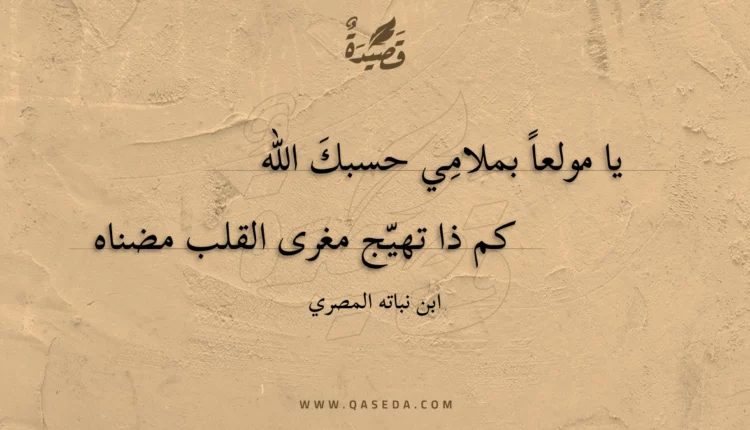 قَصِيْدَةٌ
يا مولعاً بملامِي حسبكَ الله
كم ذا تهيّج مغرى القلب مضناه
ابن نباته المصري
WWW.QASEDA.COM